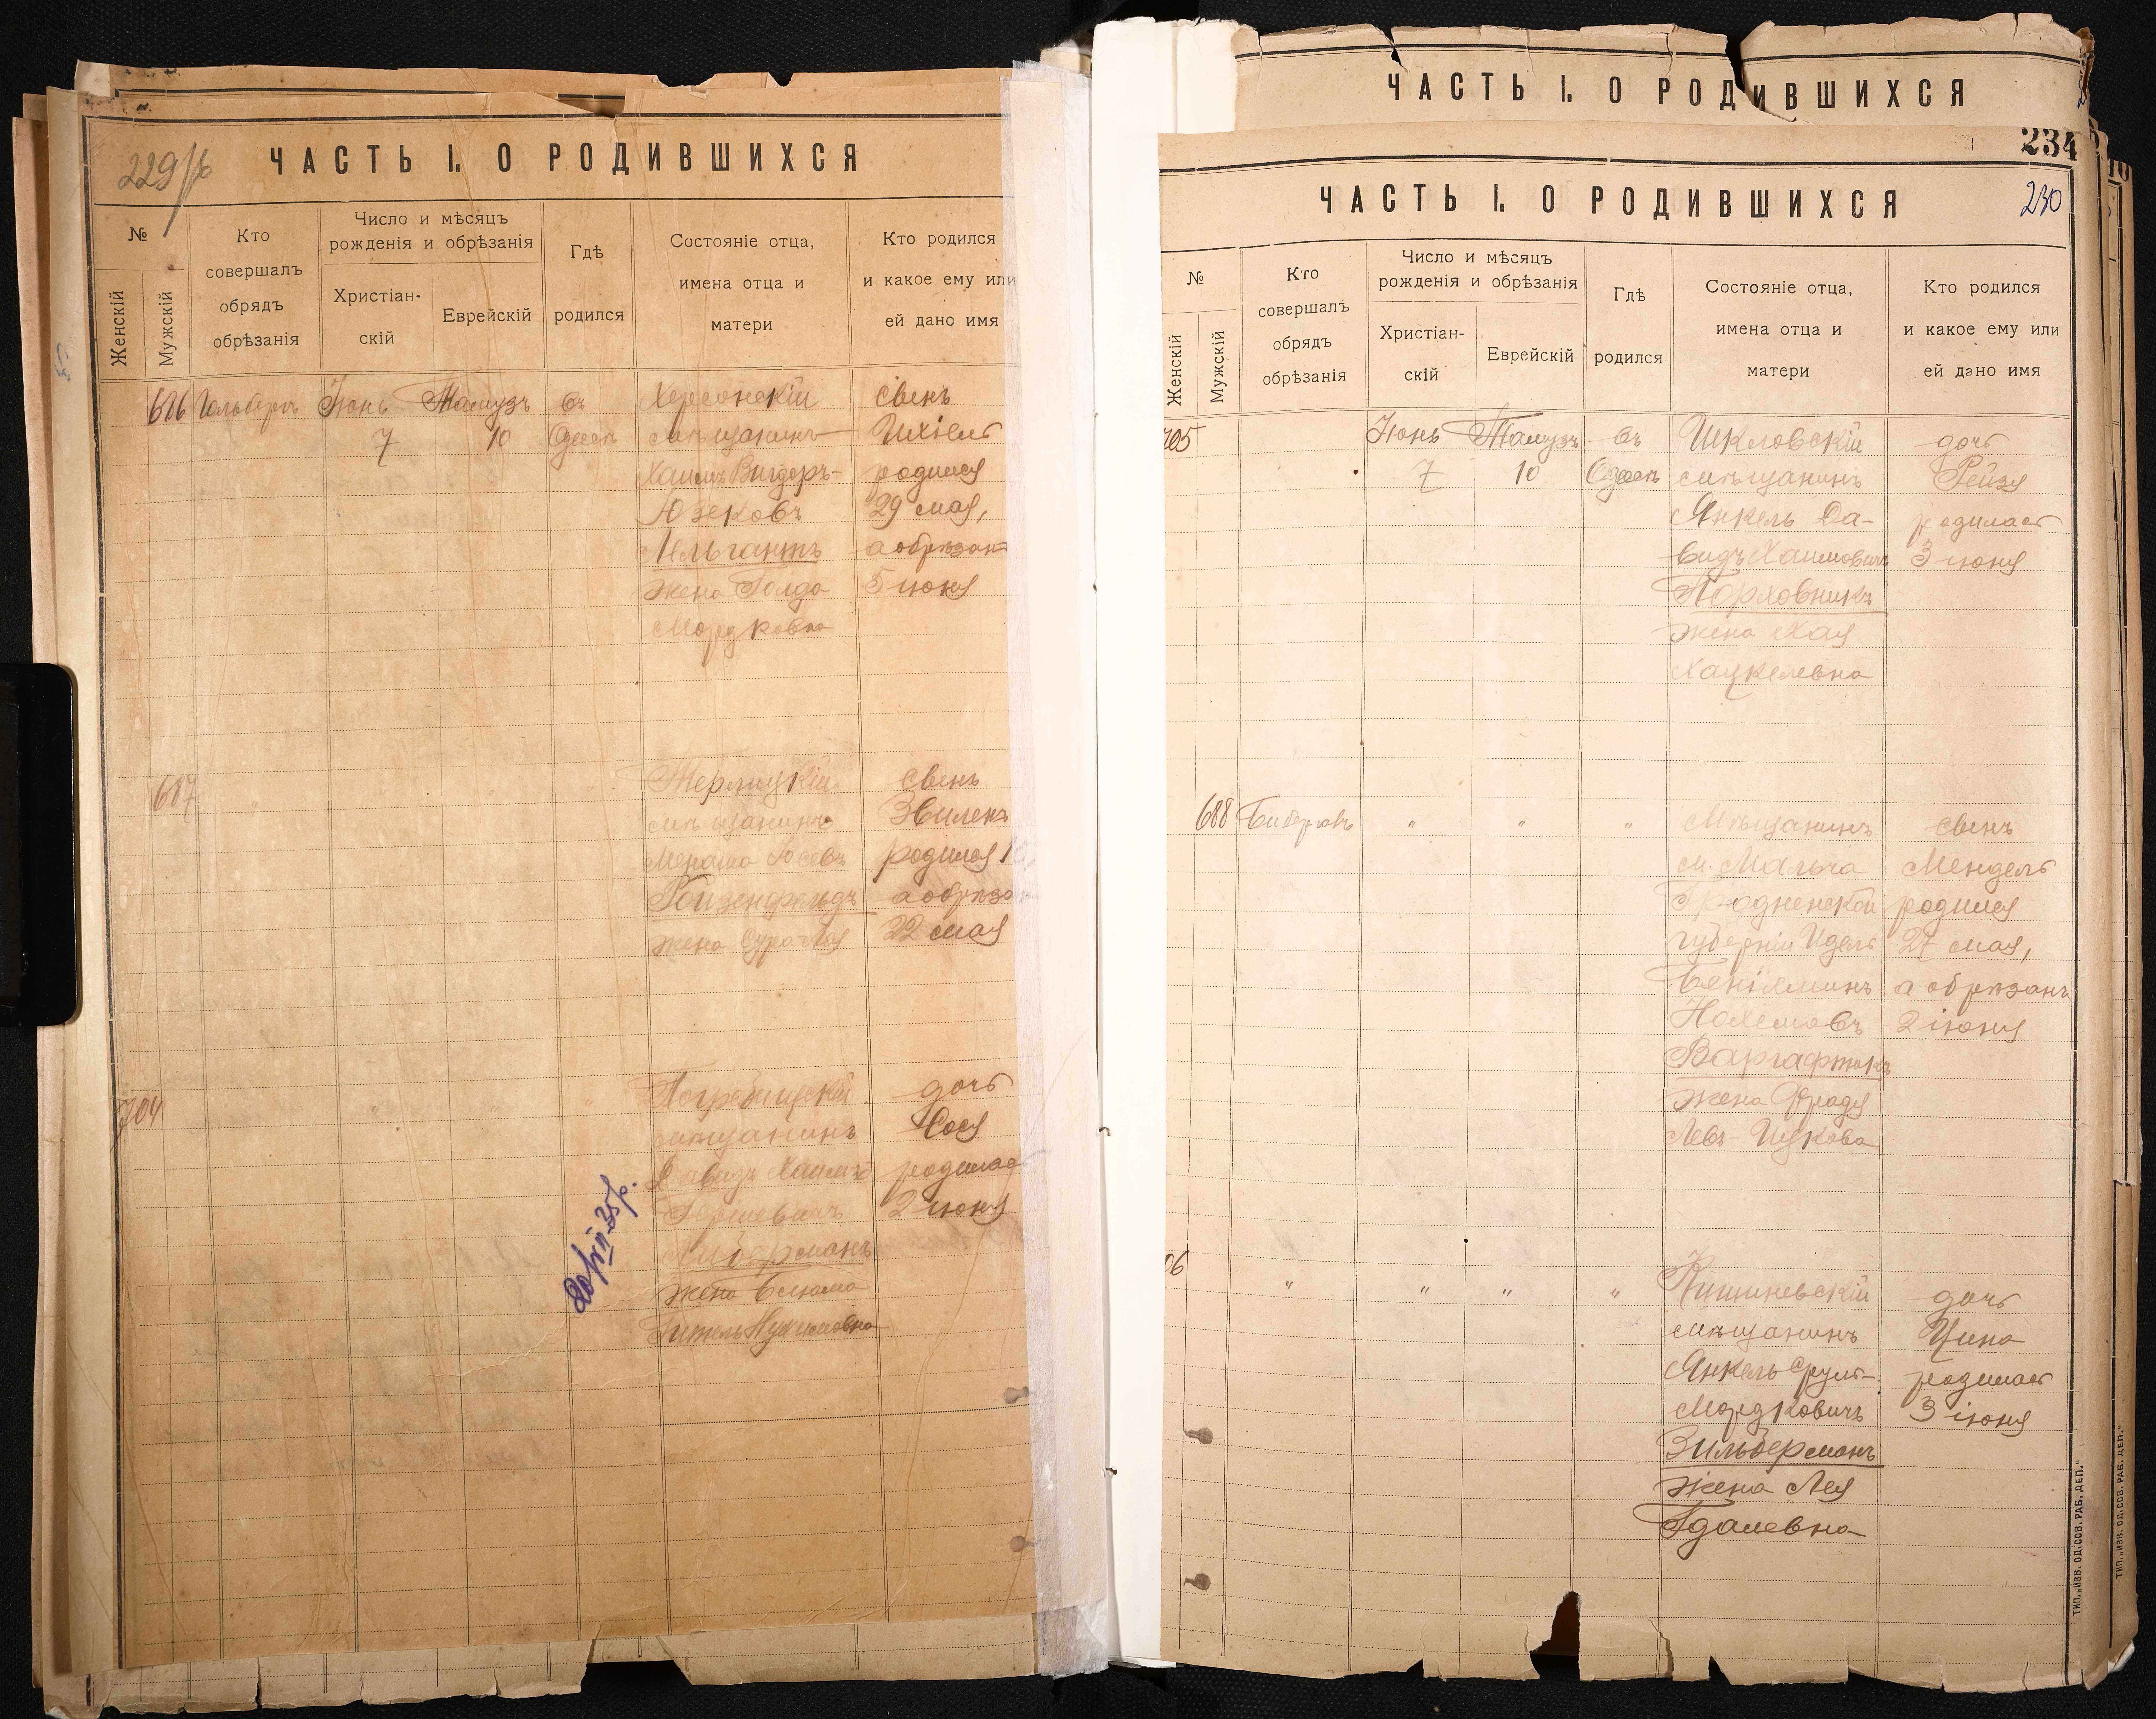 ЧАСТЬ I. О РОДИВШИХСЯ
229
№
Женскій
Мужскій
Кто
совершалъ
обрядъ
обрѣзанія
Число и мѣсяцъ
рожденія и обрѣзанія
Христіан-
скій
Еврейскій
Гдѣ
родился
Состояніе отца,
имена отца и
матери
Кто родился
и какое ему или
ей дано имя
686
Іюнь
7
Тамузъ
10
въ
Одессѣ
Херсонскій
мѣщанинъ
Хаимъ Вигдоръ-
Юзековъ
жена Голда
Мордковна
сынъ
Ихіель
родился
29 мая,
а обрѣзанъ
5 іюня
687
мѣщанинъ
Менаша Іосевъ
Гойзенфельдъ
жена Сура Лея
сынъ
родился
а обрѣзанъ
22 мая
704
Погребищскій
мѣщанинъ
Давидъ Хаимъ
Гершевичъ
Либерманъ
жена
дочь
Сося
родилась
2 іюня
ЧАСТЬ I. О РОДИВШИХСЯ
234
ЧАСТЬ I. О РОДИВШИХСЯ
230
№
Женскій
Мужскій
Кто
совершалъ
обрядъ
обрѣзанія
Число и мѣсяцъ
рожденія и обрѣзанія
Христіан-
скій
Еврейскій
Гдѣ
родился
Состояніе отца,
имена отца и
матери
Кто родился
и какое ему или
ей дано имя
705
Іюнь
7
Тамузъ
10
въ
Одессѣ
Шкловскій
мѣщанинъ
Янкель Да-
видъ Хаимовичъ
Порховникъ
жена Хая
Хацкелевна
дочь
Рейзя
родилась
3 іюня
688
"
"
"
Мѣщанинъ
м. Мальча
Гродненской
губерніи Идель
Беніяминъ
Нохемовъ
Варгафтикъ
жена Фрадя
сынъ
Мендель
родился
27 мая,
а обрѣзанъ
2 іюня
06
"
"
"
"
Кишиневскій
мѣщанинъ
Янкель Сруль-
Мордковичъ
Зильберманъ
жена Лея
Гдалевна
дочь
родилась
3 іюня
ТИП. „ИЗВ. ОД. СОВ. РАБ. ДЕП."
ТИП. „ИЗВ. ОД. СОВ. РАБ. ДЕП."